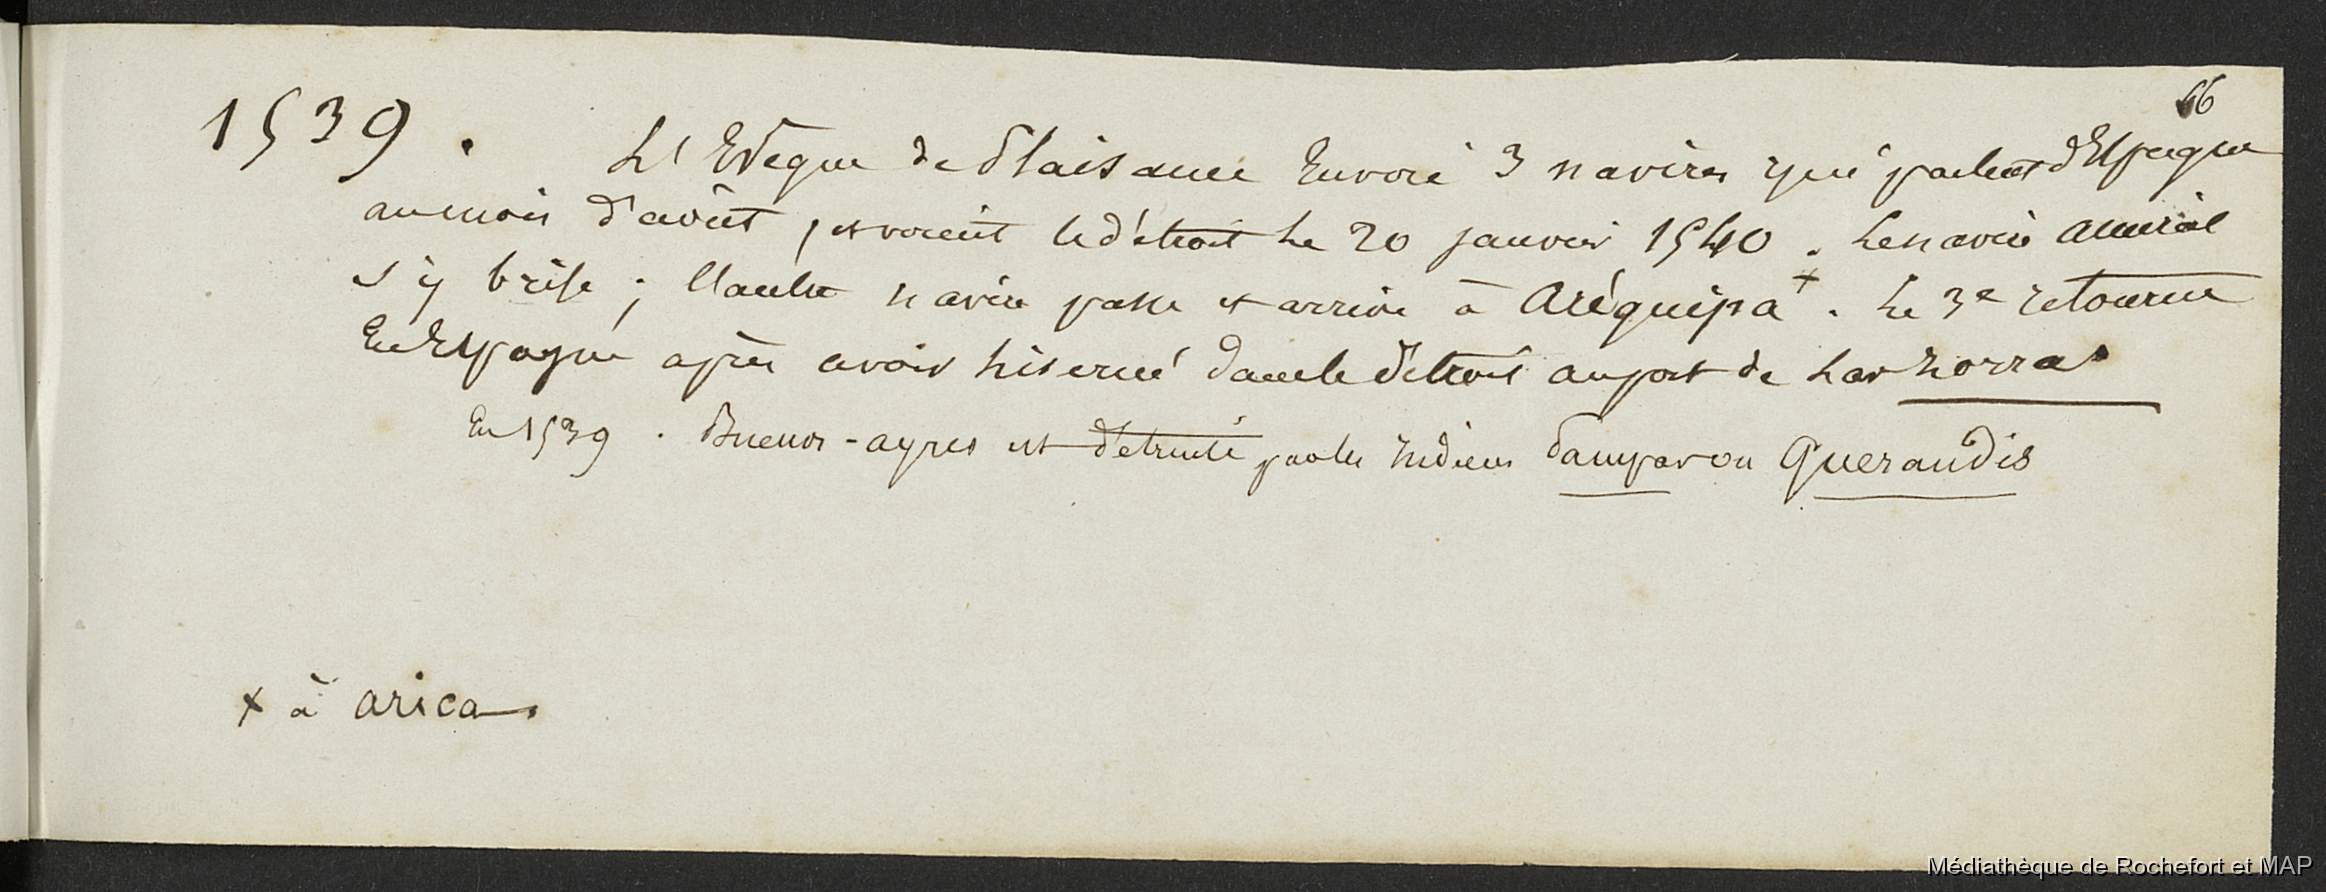 66
1539. L'Evêque de Plaisance Envoie 3 navires qui partent d'Espagne
au mois d'août, et voient le détroit le 20 janvier 1540. Le navire amiral
s'y brise; l'autre navire passe et arrive à Aréquipa +. Le 3e retourne
En Espagne après avoir hiverné dans le détroit au port de Las Zorras
En 1539. Buenos-ayres est détruite par les Indiens Pampas ou Querandis
+ à arica
Médiathèque de Rochefort et MAP